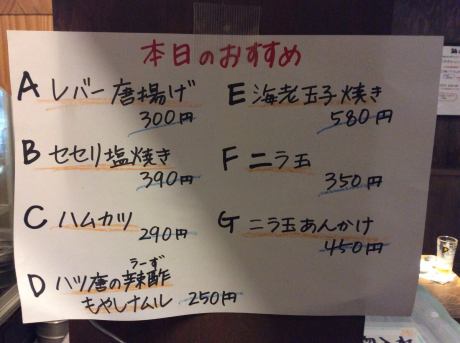 本日のおすすめ
A レバー唐揚げ
300円
B セセリ塩焼き
390円
C ハムカツ
290円
D ハツ唐の辣酢
らーず
もやしナムル 250円
E 海老玉子焼き
580円
F ニラ玉
350円
G ニラ玉あんかけ
450円